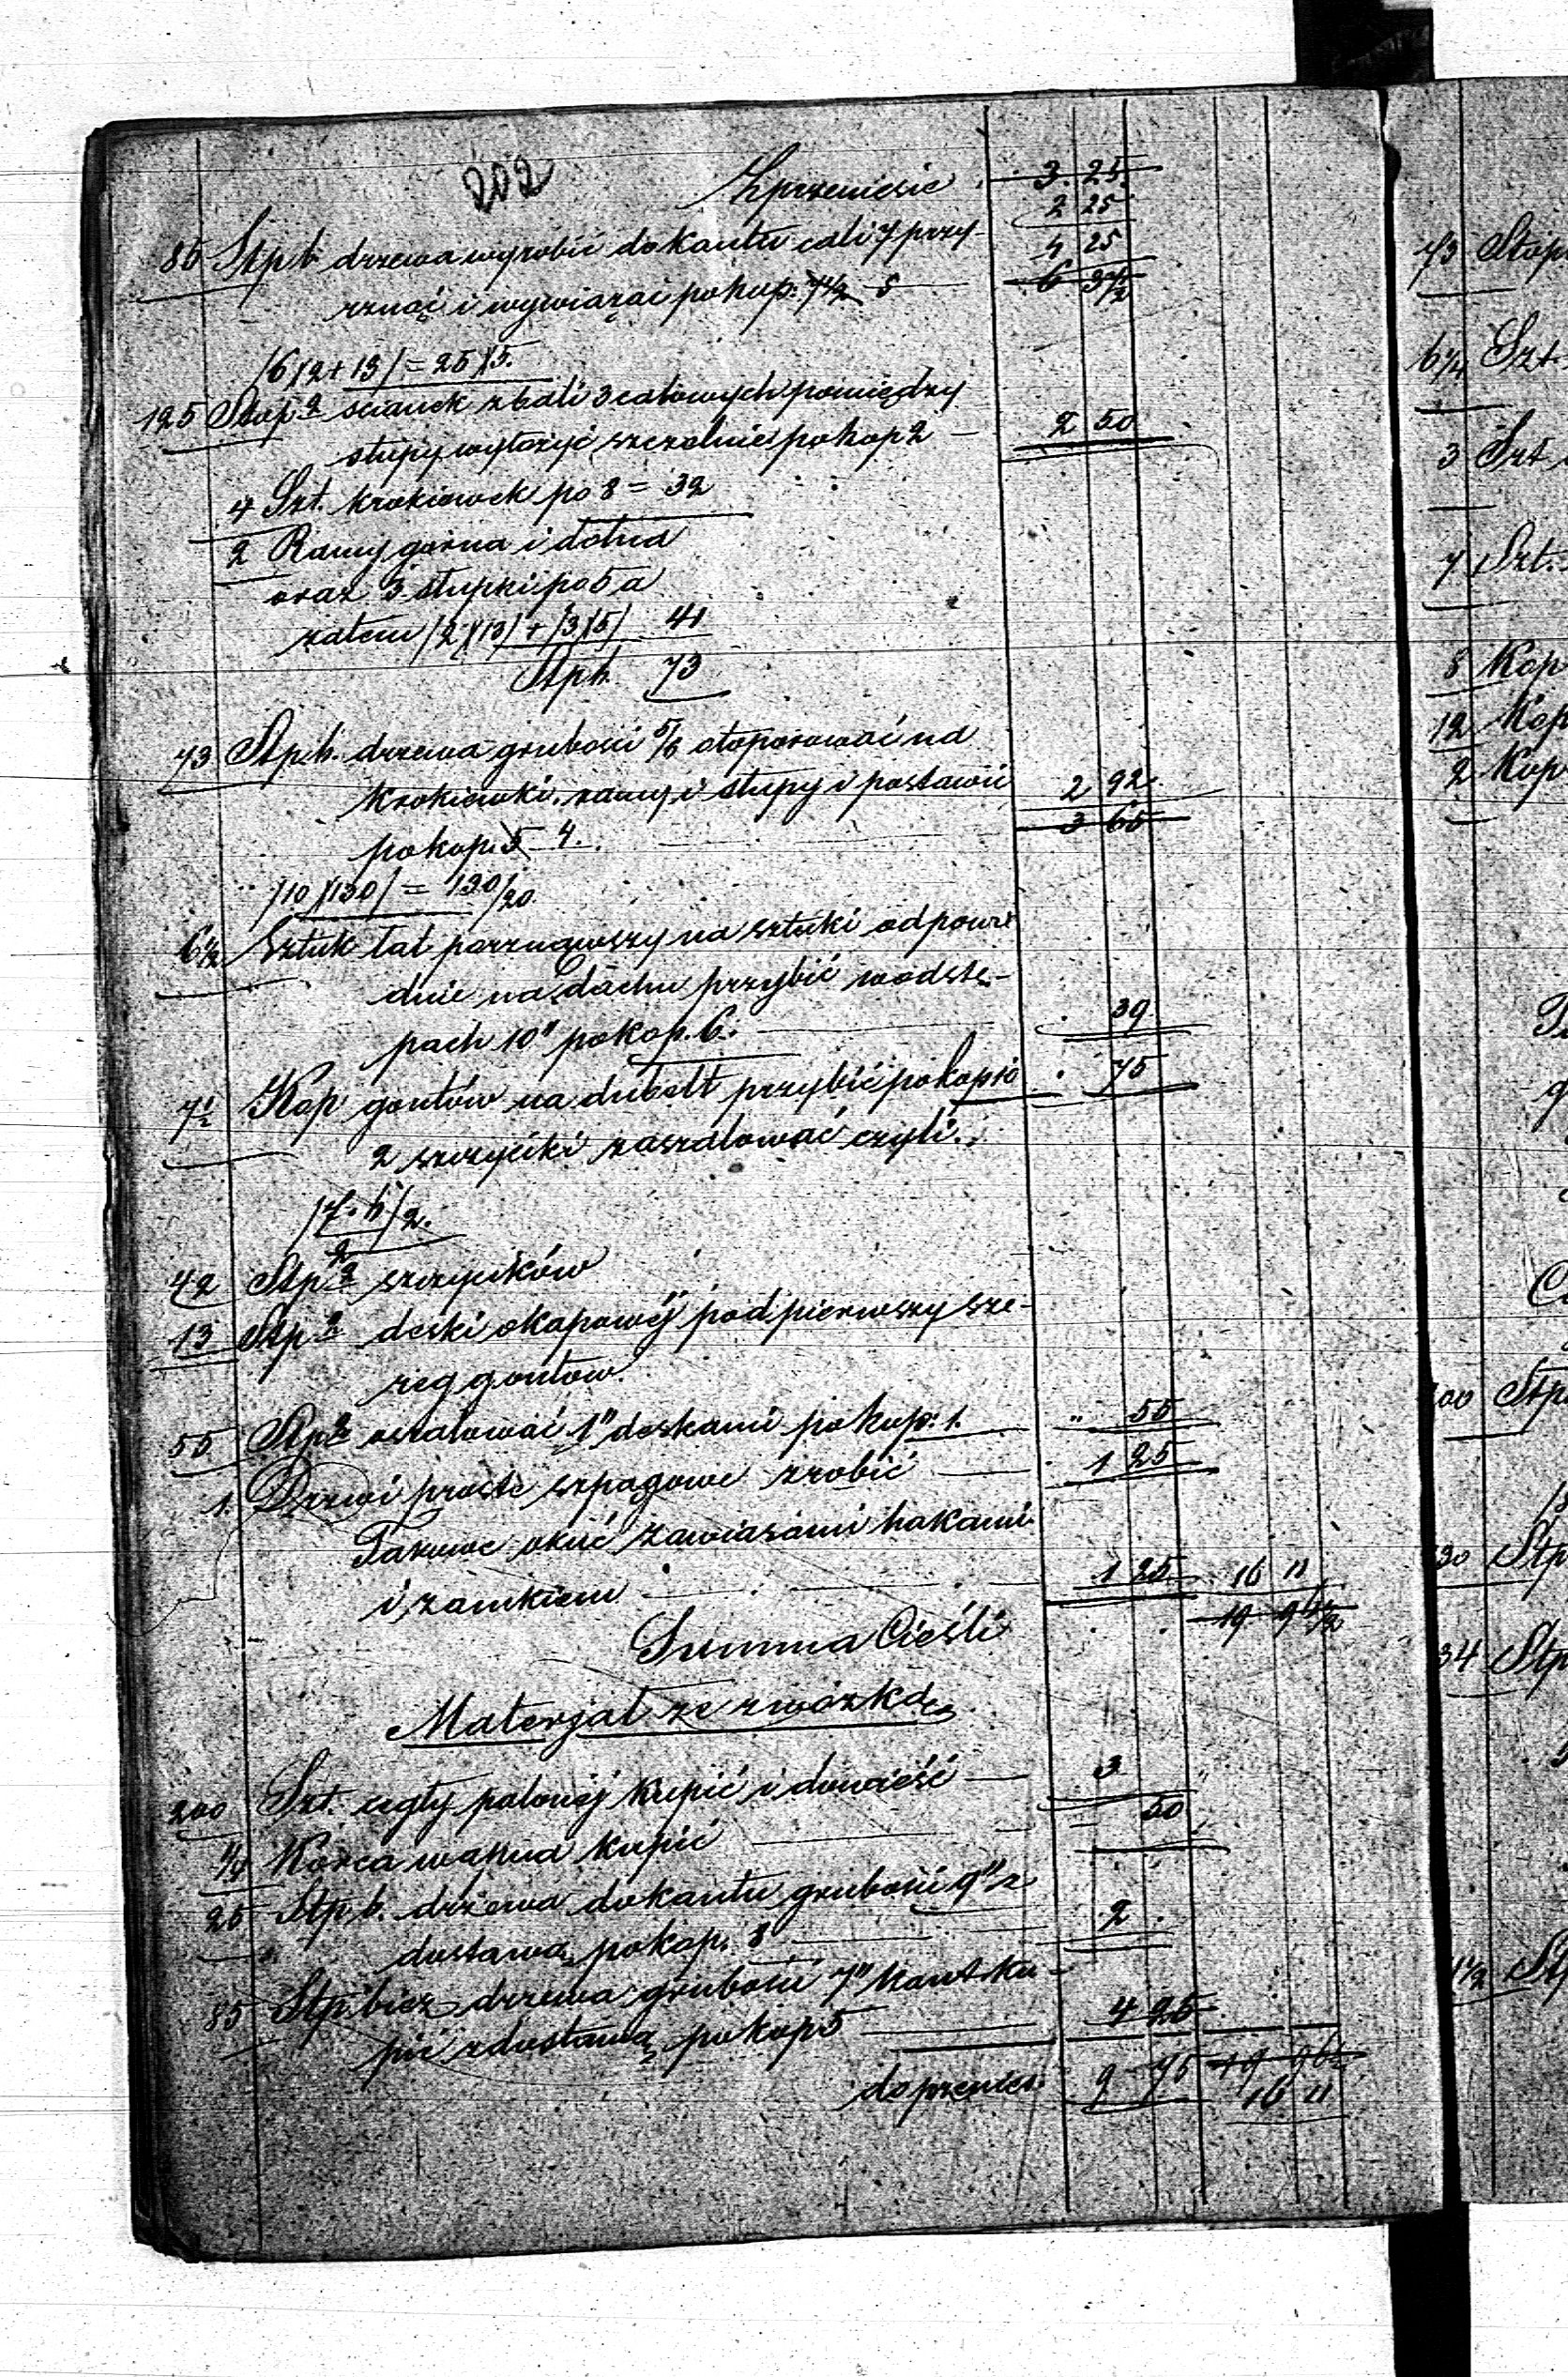 202
Zprzeniesie 3. 25.
2 25
85 Stp b. drzewa wyrobić do kantu cali 7 przy- 4 25
rznąć i wywiązać po kop. 7½ 5 6 37½
/6)(2+13/=25)(5.
125 Stop 2 ścianek z bali 3 calowych pomiędzy
słupy wyłożyć szczelnie po kop 2 — 2 50
4 Szt. krokiewek po 8 = 32
2 Ramy górna i dolna
oraz 3 słupki po 5 a
zatem /2)(13/ + /3)(5/ 41
Stp b. 73
73 Stp. b. drzewa grubości 5/6 otoporować na
krokiewki, ramy, i słupy i postawić 2 92
po kop. 5 4. 3 65
/10)(130/ = 130/20.
6½ Sztuk łat porznąwszy na sztuki odpowie
dnie na dachu przybić w odstę-
pach 10" po kop. 6. — . 39
7½ Kop gontów na dubelt przybić po kop 10 . 75
2 szczyciki zaszalować czyli.
/7. 6/2.
2
42 Stp 2 szczycików
13 Stp 2 deski okapowéj pod pierwszy sze-
reg gontów.
55 Stp 2 oszalować 1" deskami po kop: 1. " 55
1. Drzwi proste szpagowe zrobić — 1 25
Takowe okuć zawiasami hakami
i zamkiem — 1 25 16 11
Summa Cieśli . . 19 96½
Materjał ze zwózką
200 Szt. cegły palonéj kupić i dowieść — 3
¼ Korca wapna kupić — 50
25 Stp b. drzewa do kantu grubości 9" z
dostawą po kop. 8 — 2 .
85 Stp bież drzewa grubości 7" kant ku-
pić z dostawą po kop 5 — 4 25
do przenies. 9 75 19 96½
16 11
73 Stóp
6¼ Szt
3 Szt
7 Szt.
8 Kop
12 Kop
2 Kop